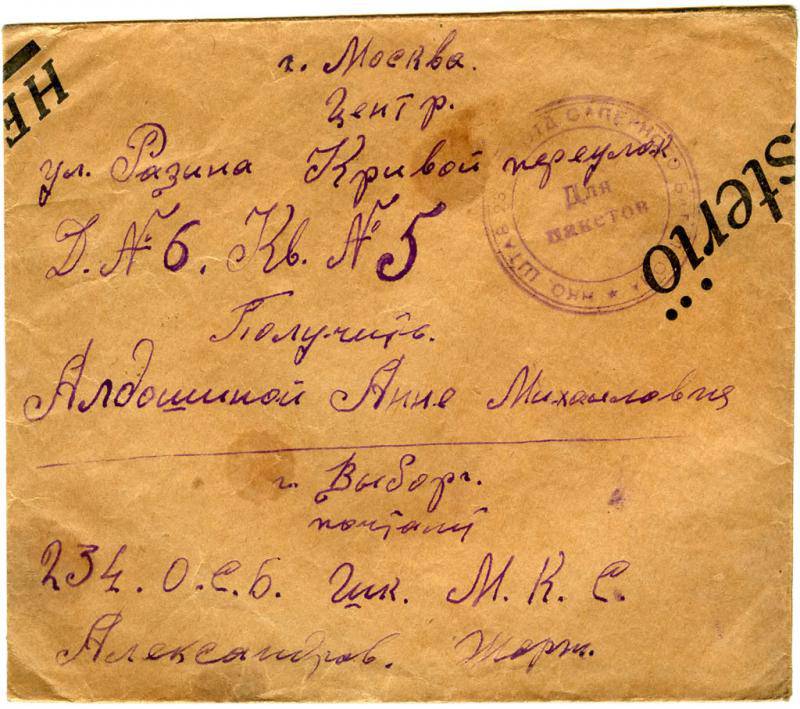 г. Москва.
Центр.
ул. Разина Кривой переулок
Д. № 6. Кв. № 5
Получить.
Алдошиной Анне Михайловне
г. Выборг.
почтамт
234. О.С.Б. Шк. М. К. С.
Александров. Жорж.
НКО. ШТАБ САПЕРНОГО
Для
пакетов
НЕ
sterio...